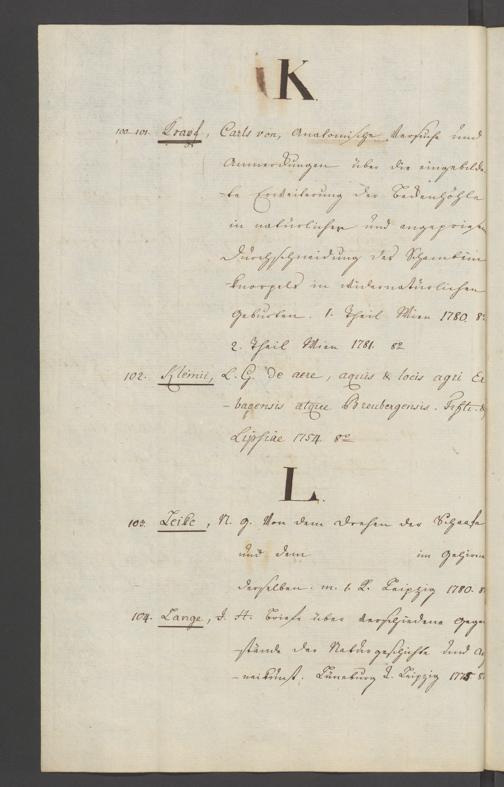 K.
100. 101. Krapf, Carls von, Anatomische Versuche und
Anmerkungen über die eingebilde-
-te Erweiterung der Beckenhöhle
in natürlichen und angepriesene
Durchschneidung des Schambein
knorpels in widernatürlichen
Geburten. 1. Theil Wien 1780. 8º
2. Theil Wien 1781. 8º
102. Klemii, L. G. De aere, aquis & locis agri Er
-bagensis atque Breubergensis.
Lipsiae 1754. 8º
L.
103. Leske, N. G. Von dem Drehen der Schaafe
und dem im Gehirn
derselben. m. 1. K. Leipzig 1780. 8
104. Lange, J. H. Briefe über verschiedene Gegen
-stände der Naturgeschichte und Arz
-neikunst. Lüneburg u. Leipzig 1775 8